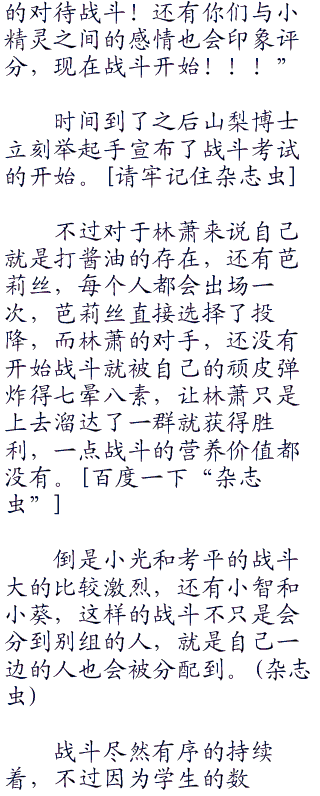 的对待战斗！还有你们与小
精灵之间的感情也会印象评
分，现在战斗开始！！！”
时间到了之后山梨博士
立刻举起手宣布了战斗考试
的开始。[请牢记住杂志虫]
不过对于林萧来说自己
就是打酱油的存在，还有芭
莉丝，每个人都会出场一
次，芭莉丝直接选择了投
降，而林萧的对手，还没有
开始战斗就被自己的顽皮弹
炸得七晕八素，让林萧只是
上去溜达了一群就获得胜
利，一点战斗的营养价值都
没有。[百度一下“杂志
虫”]
倒是小光和考平的战斗
大的比较激烈，还有小智和
小葵，这样的战斗不只是会
分到别组的人，就是自己一
边的人也会被分配到。(杂志
虫)
战斗尽然有序的持续
着，不过因为学生的数